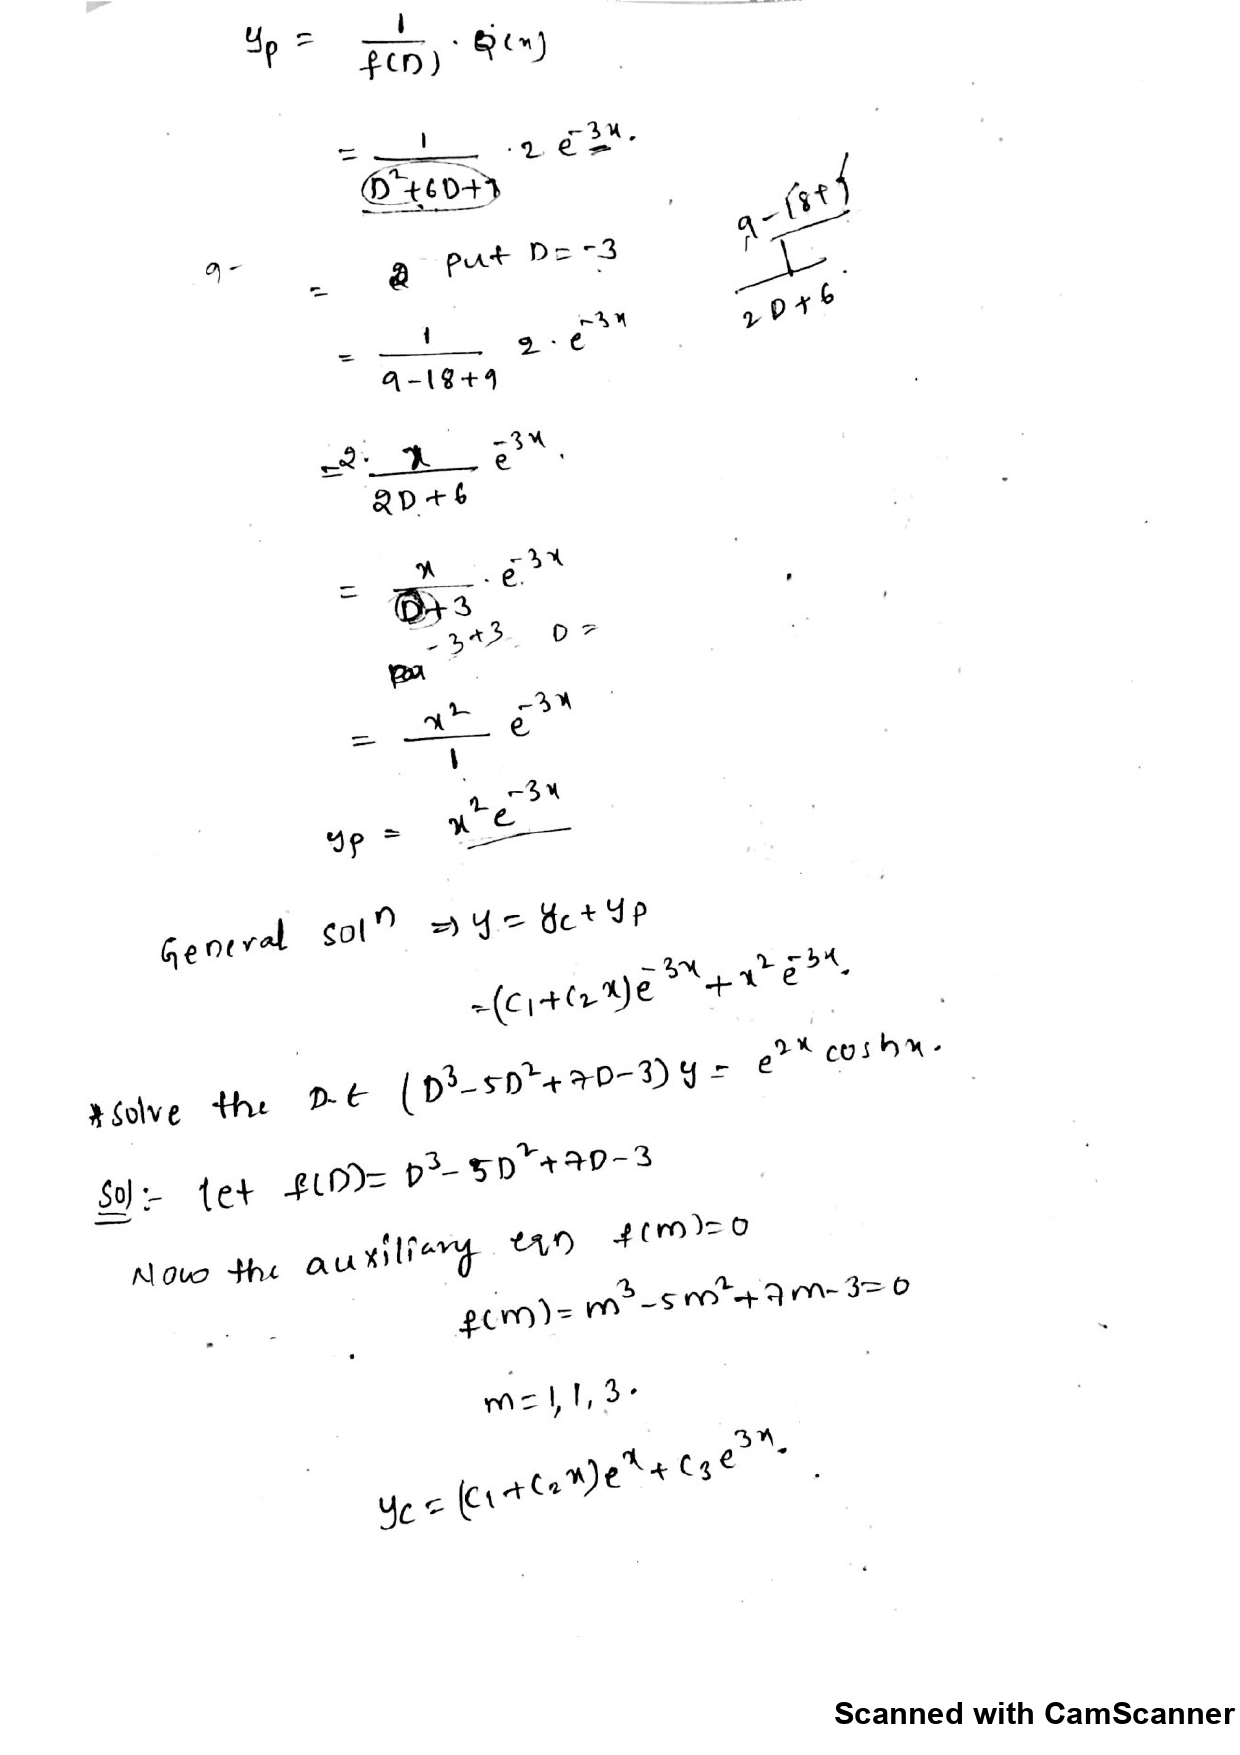 yp = 1/f(D) · Q(x)
= 1/(D²+6D+9) · 2 e^-3x.
9-18+9
1/2D+6.
9 - = 2 put D = -3
= 1/(9-18+9) 2 · e^-3x
= 2· x/(2D+6) e^-3x.
= x/(D+3) · e^-3x
-3+3 D =
= x²/1 e^-3x
yp = x² e^-3x
General solⁿ ⇒ y = yc + yp
= (c₁+c₂x)e^-3x + x² e^-3x.
* solve the D.E (D³-5D²+7D-3) y = e^2x coshx.
Sol :- let f(D) = D³-5D²+7D-3
Now the auxiliary eqn f(m)=0
f(m) = m³-5m²+7m-3=0
m = 1, 1, 3.
yc = (c₁+c₂x)e^x + c₃e^3x.
Scanned with CamScanner